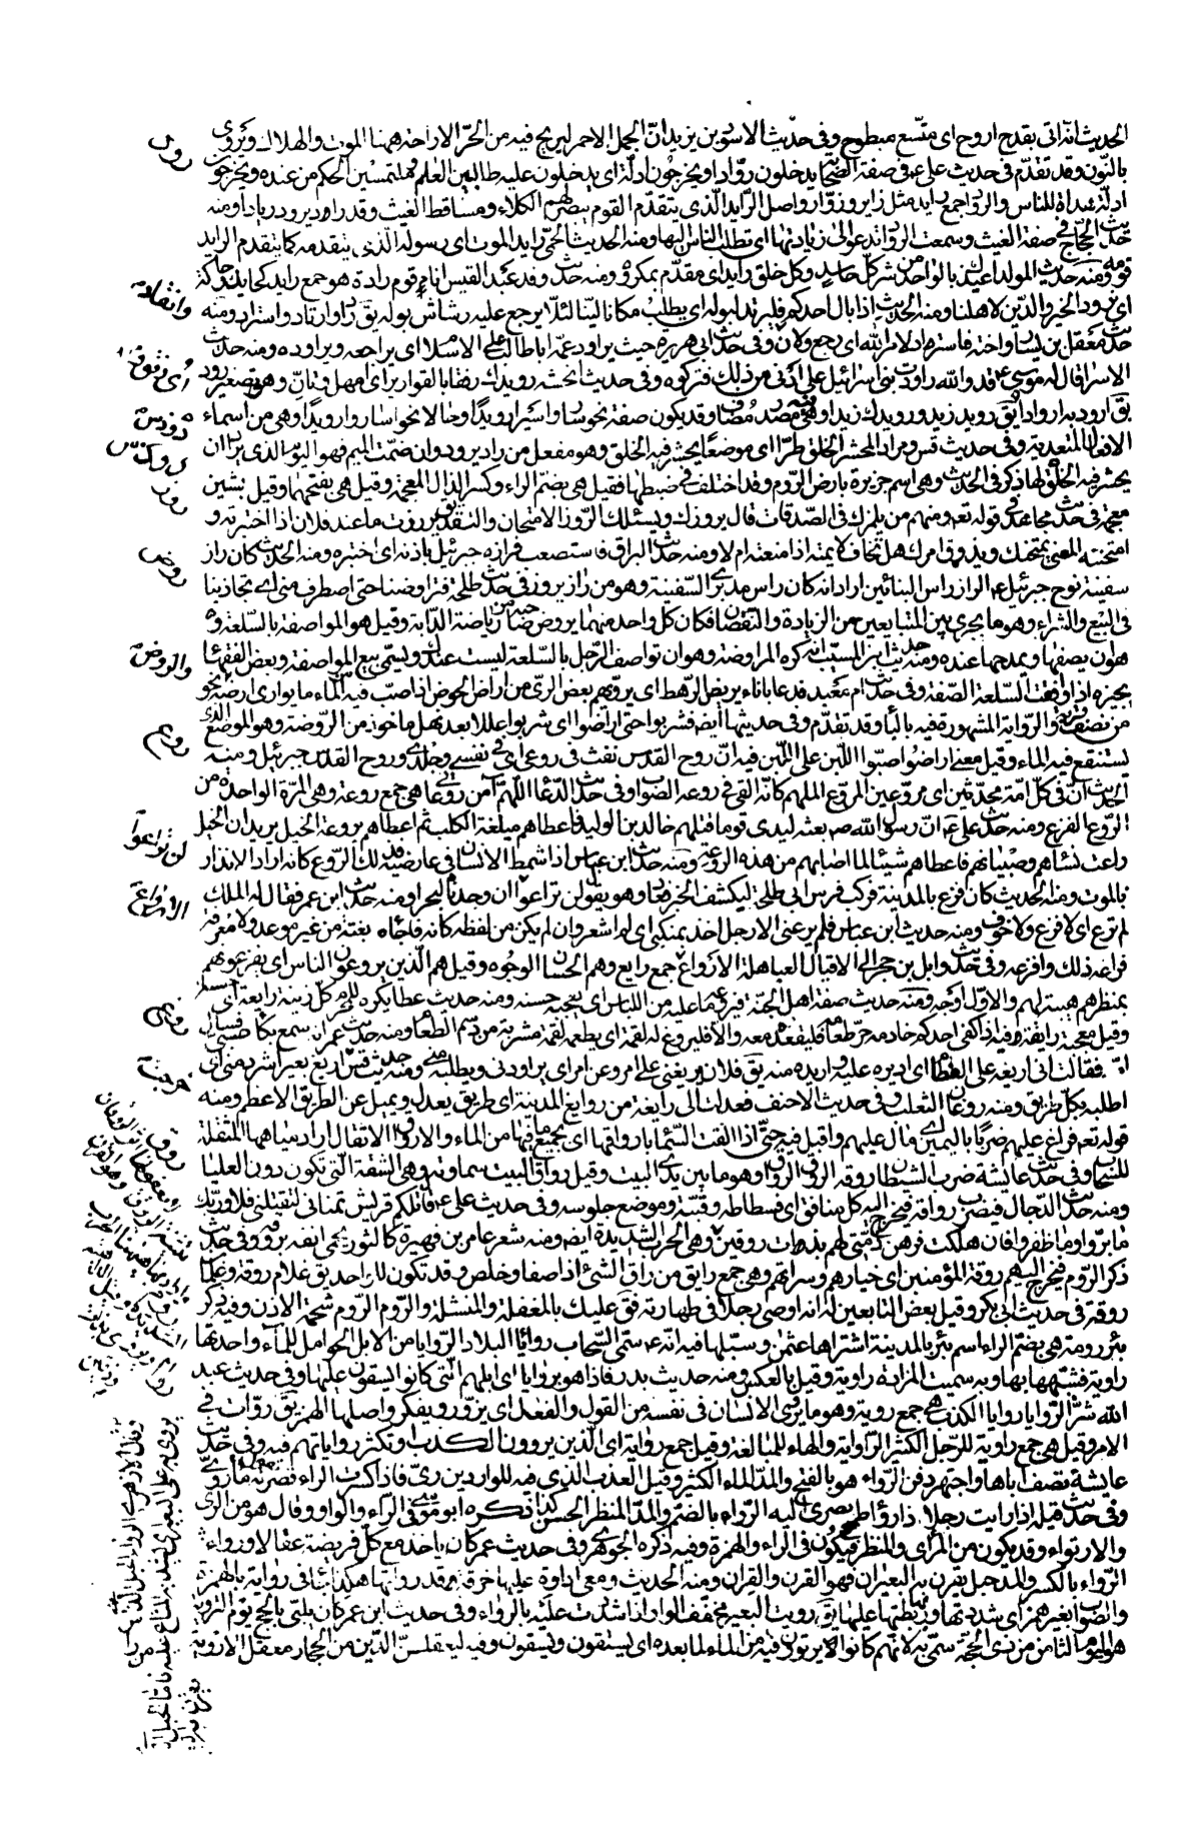 الحديث انه اتى بقدح اروح اى متسع مبطوح وفى حديث الاسود بن يزيد ان الجمل الاحمر ليريح فيه من الحر الاراحة ههنا الموت والهلاك ويروى
بالنون وقد تقدم فى حديث على ع فى صفة الصحابة يدخلون روادا ويخرجون ادلة اى يدخلون عليه طالبين العلم ملتمسين الحكم من عنده ويخرجون
ادلة هداة للناس والرواد جمع رايد مثل زاير وزوار واصل الرايد الذى يتقدم القوم يبصر لهم الكلاء ومساقط الغيث وقد راد يرود ريادا ومنه
حديث الحجاج فى صفة الغيث وسمعت الرواد تدعو الى ريادتها اى تطلب الناس اليها ومنه الحديث الحمى رايد الموت اى رسوله الذى يتقدمه كما يتقدم الرايد
قومه ومنه حديث المولد اعيذك بالواحد من شر كل حاسد وكل خلق رايد اى مقدم بمكروه ومنه حديث وفد عبد القيس انا قوم رادة هو جمع رايد كحايك وحاكة
اى نرود الخير والدين لاهلنا ومنه الحديث اذا بال احدكم فليرتد لبوله اى يطلب مكانا لينا لئلا يرجع عليه رشاش بوله يق راد وارتاد واستراد ومنه
حديث معقل بن يسار واخته فاستراد لامر الله اى رجع ولان وفى حديث ابى هريرة حيث يراود عمه ابا طالب على الاسلام اى يراجعه ويراوده ومنه حديث
الاسراء قال له موسى ع قد والله راودت بنى اسرائيل على ادنى من ذلك فتركوه وفى حديث انجشه رويدك رفقا بالقوارير اى امهل وتان وهو تصغير رود
يق ارود به اروادا ويق رويد زيد ورويدك زيدا وهى فيه مصدر مضاف وقد يكون صفة نحو ساروا سيرا رويدا وحالا نحو ساروا رويدا وهى من اسماء
الافعال المتعدية وفى حديث قس ومراد المحشر الخلق طرا اى موضعا يحشر فيه الخلق وهو مفعل من راد يرود وان ضمت الميم فهو اليوم الذى يراد ان
يحشر فيه الخلق لها ذكر فى الحديث وهى اسم جزيرة بارض الروم وقد اختلف فى ضبطها فقيل هى بضم الراء وكسر الذال المعجمة وقيل هى بفتحها وقيل بشين
معجمة فى حديث مجاهد فى قوله تعم ومنهم من يلمزك فى الصدقات قال يروزك ويسئلك الروز الامتحان والتقدير يق رزت ما عند فلان اذا اختبرته و
امتحنته المعنى يمتحنك ويذوق امرك هل تخاف لايمته اذا منعته ام لا ومنه حديث البراق فاستصعب فرازه جبرئيل باذنه اى اختبره ومنه الحديث كان راز
سفينة نوح جبرئيل ع الراز راس البنائين اراد انه كان راس مدبرى السفينة وهو من راز يروز فى حديث طلحة فتراوضنا حتى اصطرف منى اى تجاذبنا
فى البيع والشراء وهو ما يجرى بين المتبايعين من الزيادة والنقصان فكان كل واحد منهما يروض صاحبه من رياضة الدابة وقيل هو المواصفة بالسلعة و
هو ان يصفها ويمدحها عنده ومنه حديث ابن المسيب انه كره المراوضة وهو ان تواصف الرجل بالسلعة ليست عندك ويسمى بيع المواصفة وبعض الفقهاء
يجيزه اذا وافقت السلعة الصفة وفى حديث ام معبد فدعا باناء يريض الرهط اى يرويهم بعض الرى من اراض الحوض اذا صب فيه من الماء ما يوارى ارضه نحو
من نصف قربة والرواية المشهورة فيه بالباء وقد تقدم وفى حديثها ايضه فشربوا حتى اراضوا اى شربوا عللا بعد نهل ماخوذ من الروضة وهو الموضع الذى
يستنقع فيه الماء وقيل معنى اراضوا صبوا اللبن على اللبن فيه ان روح القدس نفث فى روعى اى فى نفسى وخلدى وروح القدس جبرئيل ومنه
الحديث ان فى كل امة محدثين اى مروعين المروع الملهم كانه القى فى روعه الصواب وفى حديث الدعاء اللهم آمن روعاتى هى جمع روعة وهى المرة الواحدة من
الروع الفزع ومنه حديث على ع ان رسول الله ص بعثه ليدى قوما قتلهم خالد بن الوليد فاعطاهم ميلغة الكلب ثم اعطاهم بروعة الخيل يريد ان الخيل
راعت نساءهم وصبيانهم فاعطاهم شيئا لما اصابهم من هذه الروعة ومنه حديث ابن عباس اذا شمط الانسان فى عارضيه فذلك الروع كانه اراد الانذار
بالموت ومنه الحديث كان فزع بالمدينة فركب فرس ابى طلحة ليكشف الخبر فعاد وهو يقول لن تراعوا ان وجدناه لبحرا ومنه حديث ابن عمر فقال له الملك
لم ترع اى لا فزع ولا خوف ومنه حديث ابن عباس فلم يرعنى الا رجل اخذ بمنكبى اى لم اشعر وان لم يكن من لفظه كانه فاجاه بغتة من غير موعد ولا معرفة
فراعه ذلك وافزعه وفى حديث وايل بن حجر الى الاقيال العباهلة الارواع جمع رايع وهم الحسان الوجوه وقيل هم الذين يروعون الناس اى يفزعونهم
بمنظرهم هيبة لهم والاول اوجه ومنه حديث صفة اهل الجنة فيروعه ما عليه من اللباس اى يعجبه حسنه ومنه حديث عطا يكره للمحرم كل زينة رايعة اى حسنة
وقيل معجبة رايقة وفيه اذا كفى احدكم خادمه حر طعامه فليقعده معه والا فليروغ له لقمة اى يطعمه لقمة مشربة من دسم الطعام ومنه حديث عمر انه سمع بكاء صبى فسال
امه فقالت انى اريغه على الفطام اى اديره عليه واريده منه يق فلان يريغنى على امر وعن امر اى يراودنى ويطلبه منى ومنه حديث قس اريغ بعيرا شرد منى اى
اطلبه بكل طريق ومنه روغان الثعلب وفى حديث الاحنف فعدلت الى رايغة من روايغ المدينة اى طريق يعدل ويميل عن الطريق الاعظم ومنه
قوله تعم فراغ عليهم ضربا باليمين اى مال عليهم واقبل فيه حتى اذا القت السماء باروقتها اى بجميع ما فيها من الماء والارواق الاثقال اراد مياهها المثقلة
للسحاب وفى حديث عايشة ضرب الشيطان روقه الروق الرواق وهو ما بين يدى البيت وقيل رواق البيت سماوته وهى الشقة التى تكون دون العليا
ومنه حديث الدجال فيضرب رواقه فيخرج اليه كل منافق اى فسطاطه وقبته وموضع جلوسه وفى حديث على ع تلكم قريش تمنانى لتقتلنى فلا وربك
ما بروا وما ظفروا فان هلكت فرهن ذمتى لهم بذات روقين وهى الحرب الشديدة ايضه ومنه شعر عامر بن فهيرة كالثور يحمى انفه بروقه وفى حديث
ذكر الروم فيخرج اليهم روقة المؤمنين اى خيارهم وسراتهم وهى جمع رايق من راق الشئ اذا صفا وخلص وقد تكون للواحد يق غلام روقة وغلمان
روقة فى حديث ابى بكر وقيل بعض التابعين انه اوصى رجلا فى طهارته فق عليك بالمغفلة والمنشلة والروم الروم شحمة الاذن وفيه ذكر
بئر رومة هى بضم الراء اسم بئر بالمدينة اشتراها عثمن وسبلها فيه انه ع سمى السحاب روايا البلاد الروايا من الابل الحوامل للماء واحدتها
راوية فشبهها بها وبه سميت المزادة راوية وقيل بالعكس ومنه حديث بدر فاذا هو بروايا اى ابلهم التى كانوا يستقون عليها وفى حديث عبد
الله شر الروايا روايا الكذب هى جمع روية وهو ما يروى الانسان فى نفسه من القول والفعل اى يزور ويفكر واصلها الهمز يق روات فى
الامر وقيل هى جمع راوية للرجل الكثير الرواية والهاء للمبالغة وقيل جمع رواية اى الذين يروون الكذب وتكثر رواياتهم فيه وفى حديث
عايشة تصف اباها واجتهر دفن الرواء هو بالفتح والمد الماء الكثير وقيل العذب الذى فيه للواردين رى فاذا كسرت الراء قصرته ماء روى
وفى حديث قيلة اذا رايت رجلا ذا رواء طمح بصرى اليه الرواء بالضم والمد المنظر الحسن كذا ذكره ابو موسى فى الراء والواو وقال هو من الرى
والارتواء وقد يكون من المرأى والمنظر فيكون فى الراء والهمزة وفيه ذكره الجوهرى وفى حديث عمر كان ياخذ مع كل فريضة عقالا ورواء
الرواء بالكسر والمد حبل يقرن به البعيران فهو القرن والقران ومنه الحديث ومعى اداوة عليها خرقة قد رواتها هكذا جاء فى رواية بالهمزة
والصواب بغير همز اى شددتها وربطتها عليها يق رويت البعير مخفف الواو اذا شددت عليه بالرواء وفى حديث ابن عمر كان يلبى بالحج يوم التروية
هو اليوم الثامن من ذى الحجة سمى به لانهم كانوا يرتوون فيه من الماء لما بعده اى يستقون ويسقون وفيه ليعقلن الدين من الحجاز معقل الاروية
رود
وانقاد
رودس
روز
روض
والروضة
روع
لن تراعوا
الارواع
روغ
روق
روم
روى